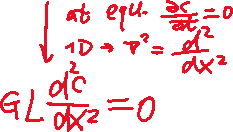 at equ. ∂c/∂t = 0
1D → ∇² = d²/dx²
GL d²c/dx² = 0